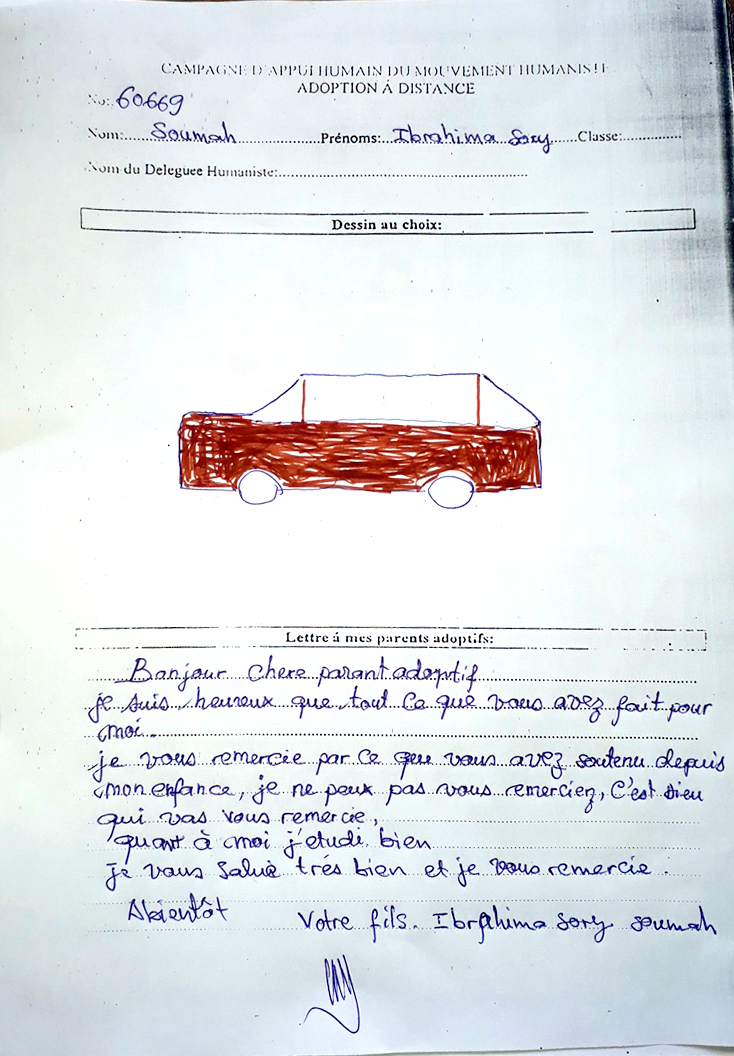 CAMPAGNE D'APPUI HUMAIN DU MOUVEMENT HUMANISTE
ADOPTION Á DISTANCE
No: 60669
Nom: Soumah Prénoms: Ibrahima Sory Classe:
Nom du Deleguee Humaniste:
Dessin au choix:
Lettre á mes parents adoptifs:
Bonjour Chere parant adoptif
je suis heureux que tout Ce que vous avez fait pour
moi.
je vous remercie par ce que vous avez soutenu depuis
mon enfance, je ne peux pas vous remerciez, C'est Dieu
qui vas vous remercie,
quant à moi j'etudi bien
je vous Salue trés bien et je vous remercie.
Abientôt Votre fils. Ibrahima Sory Soumah